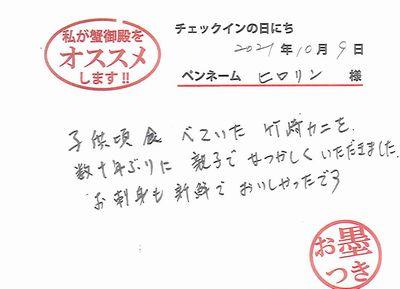 私が蟹御殿を
オススメ
します!!
チェックインの日にち
2021年10月9日
ペンネーム ヒロリン 様
子供頃食べていた竹崎カニを、
数十年ぶりに親子でなつかしくいただきました。
お刺身も新鮮でおいしかったです
お墨
つき